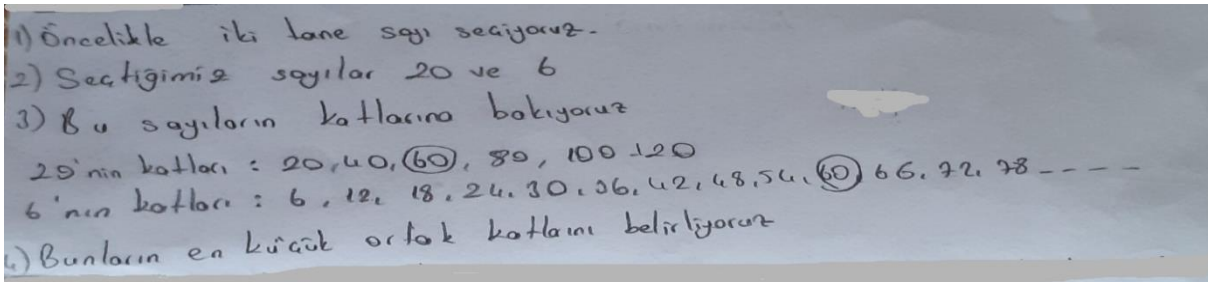 1) Öncelikle iki tane sayı seçiyoruz.
2) Seçtiğimiz sayılar 20 ve 6
3) Bu sayıların katlarına bakıyoruz
20'nin katları : 20, 40, 60, 80, 100 120
6'nın katları : 6, 12, 18, 24, 30, 36, 42, 48, 54, 60 66, 72, 78 ----
4) Bunların en küçük ortak katlarını belirliyoruz